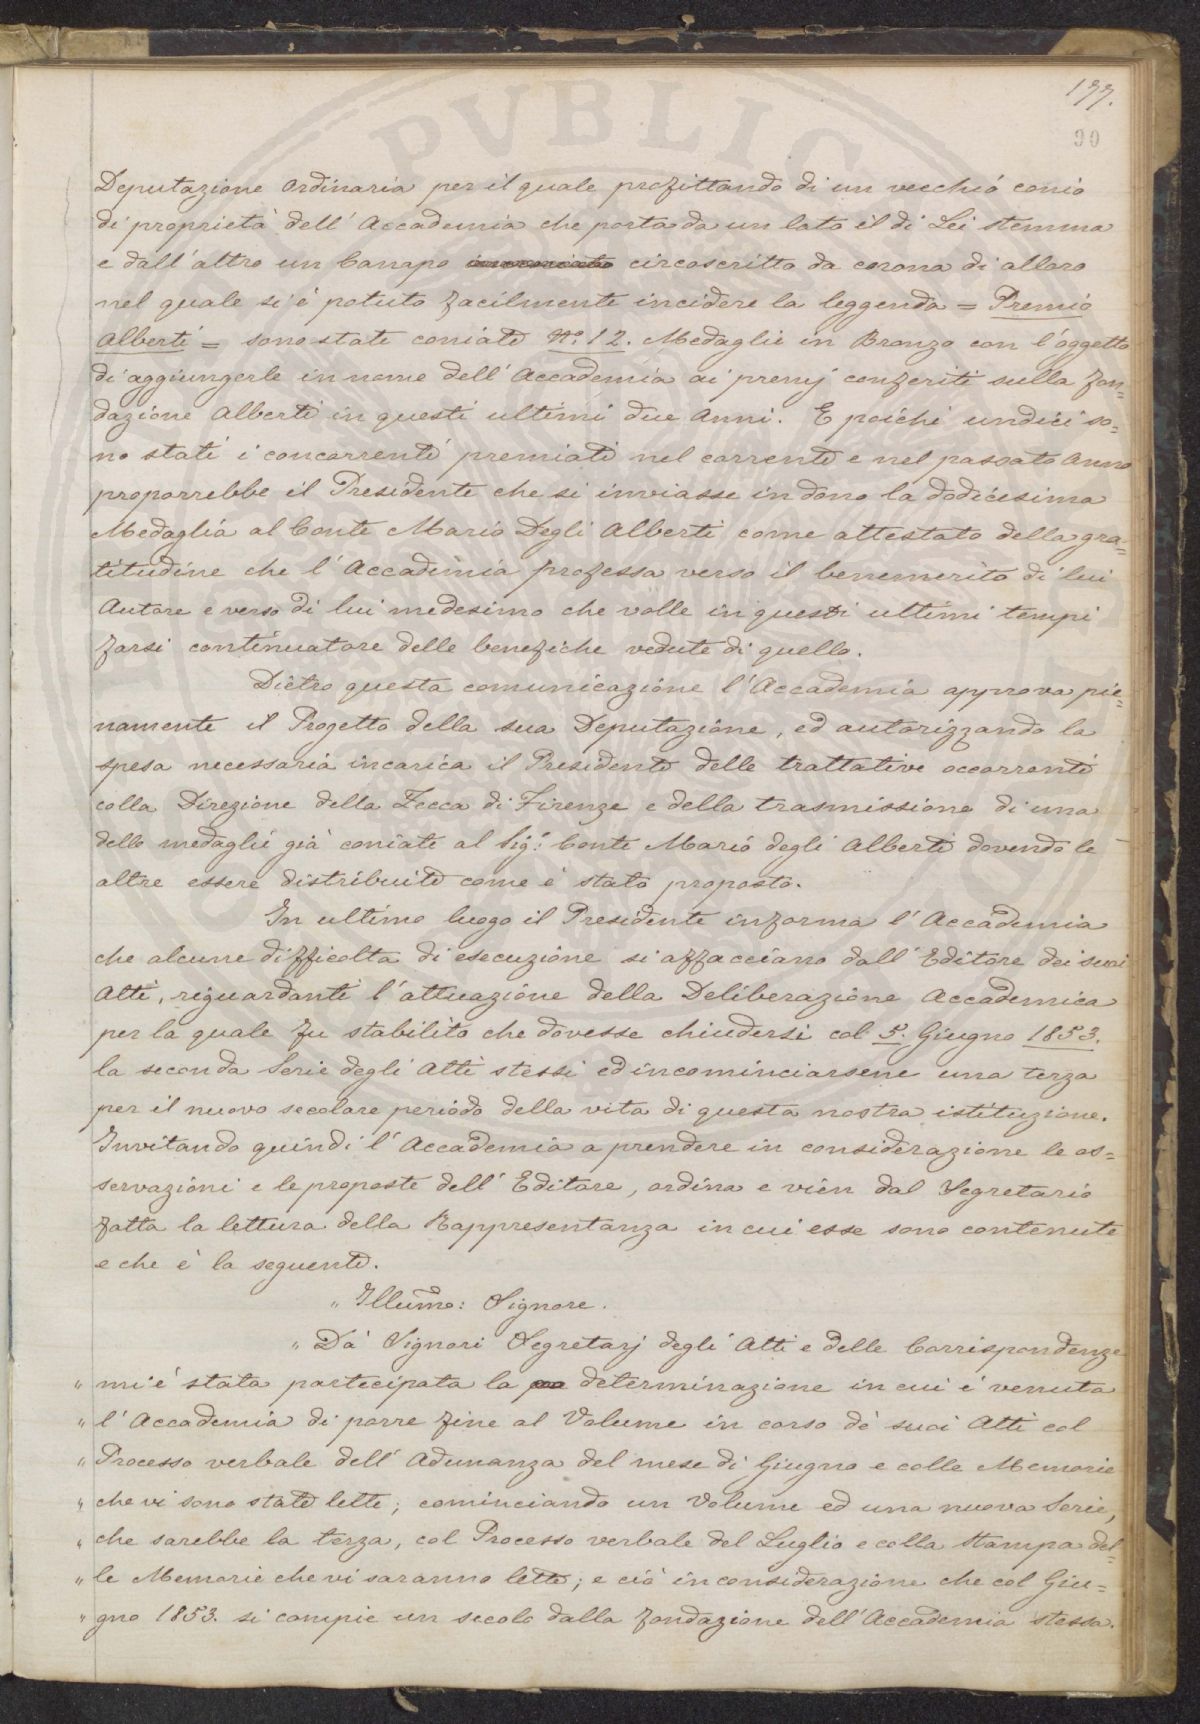 177.
90
Deputazione Ordinaria per il quale profittando di un vecchio conio
di proprietà dell' Accademia che porta da un lato il di Lei stemma
e dall' altro un Campo circoscritto da corona di alloro
nel quale si è potuto facilmente incidere la leggenda = Premio
Alberti = sono state coniate No. 12. Medaglie in Bronzo con l'oggetto
di aggiungerle in nome dell' Accademia ai premj conferiti sulla Fon=
dazione Alberti in questi ultimi due Anni. E poichè undici so=
no stati i concorrenti premiati nel corrente e nel passato Anno
proporrebbe il Presidente che si inviasse in dono la dodicesima
Medaglia al Conte Mario Degli Alberti come attestato della gra=
titudine che l' Accademia professa verso il benemerito di lui
Autore e verso di lui medesimo che volle in questi ultimi tempi
farsi continuatore delle benefiche vedute di quello.
Dietro questa comunicazione l' Accademia approva pie=
namente il Progetto della sua Deputazione, ed autorizzando la
spesa necessaria incarica il Presidente delle trattative occorrenti
colla Direzione della Zecca di Firenze e della trasmissione di una
delle medaglie già coniate al Sig.r Conte Mario degli Alberti dovendo le
altre essere distribuite come è stato proposto.
In ultimo luogo il Presidente informa l' Accademia
che alcune difficolta di esecuzione si affacciano dall' Editore dei suoi
Atti, riguardanti l'attuazione della Deliberazione Accademica
per la quale fu stabilito che dovesse chiudersi col 5. Giugno 1853.
la seconda Serie degli Atti stessi ed incominciarsene una terza
per il nuovo secolare periodo della vita di questa nostra istituzione.
Invitando quindi l' Accademia a prendere in considerazione le os=
servazioni e le proposte dell' Editore, ordina e vien dal Segretario
fatta la lettura della Rappresentanza in cui esse sono contenute
e che è la seguente.
" Illumo: Signore.
" Da' Signori Segretarj degli Atti e delle Corrispondenze
" mi è stata partecipata la determinazione in cui è venuta
" l' Accademia di porre fine al Volume in corso de' suoi Atti col
" Processo verbale dell' Adunanza del mese di Giugno e colle Memorie
" che vi sono state lette; cominciando un Volume ed una nuova Serie,
" che sarebbe la terza, col Processo verbale del Luglio e colla Stampa del=
" le Memorie che vi saranno lette; e ciò in considerazione che col Giu=
" gno 1853. si compie un secolo dalla fondazione dell' Accademia stessa.